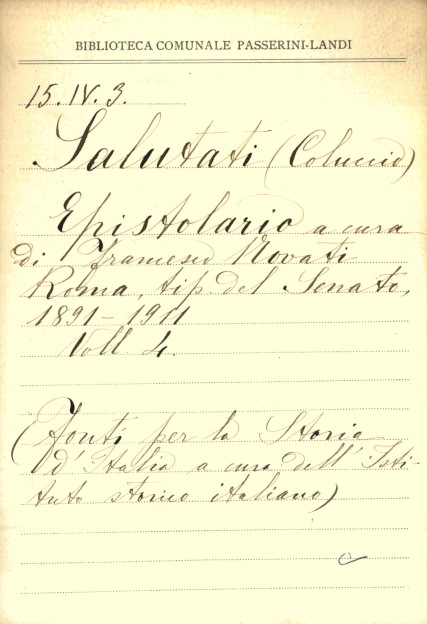 BIBLIOTECA COMUNALE PASSERINI-LANDI
15.IV.3.
Salutati (Coluccio)
Epistolario a cura
di Francesco Novati
Roma, tip. del Senato,
1891-1911
Voll 4.
(Fonti per la Storia
d'Italia a cura dell'Isti-
tuto storico italiano)